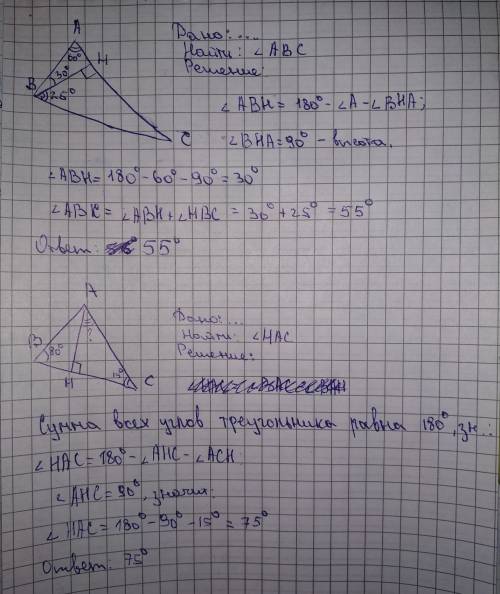 A
60° H
B 30°
25°
C
Дано: ...
Найти: ∠ABC
Решение:
∠ABH = 180° - ∠A - ∠BHA;
∠BHA = 90° - высота.
∠ABH = 180° - 60° - 90° = 30°
∠ABC = ∠ABH + ∠HBC = 30° + 25° = 55°
Ответ: 55°
A
?
B 80°
H 15° C
Дано: ...
Найти: ∠HAC
Решение:
Сумма всех углов треугольника равна 180°, зн.:
∠HAC = 180° - ∠AHC - ∠ACH
∠AHC = 90°, значит:
∠HAC = 180° - 90° - 15° = 75°
Ответ: 75°